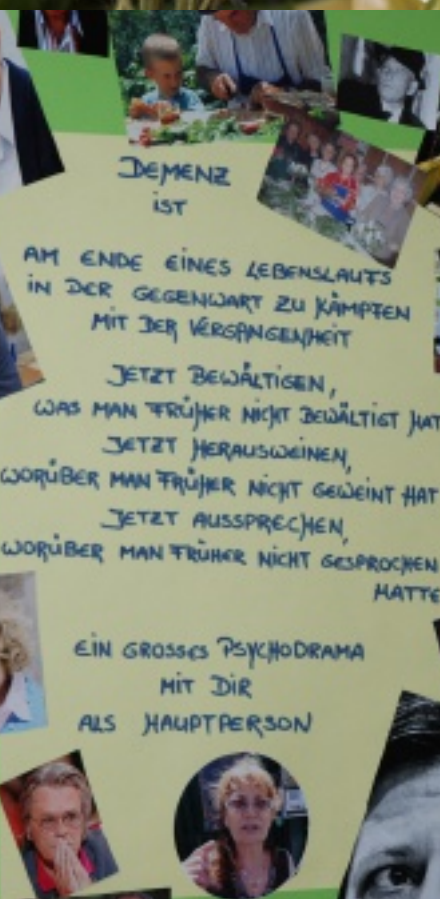 DEMENZ
IST
AM ENDE EINES LEBENSLAUFS
IN DER GEGENWART ZU KÄMPFEN
MIT DER VERGANGENHEIT
JETZT BEWÄLTIGEN,
WAS MAN FRÜHER NICHT BEWÄLTIGT HAT
JETZT HERAUSWEINEN,
WORÜBER MAN FRÜHER NICHT GEWEINT HAT
JETZT AUSSPRECHEN,
WORÜBER MAN FRÜHER NICHT GESPROCHEN
HATTE
EIN GROSSES PSYCHODRAMA
MIT DIR
ALS HAUPTPERSON